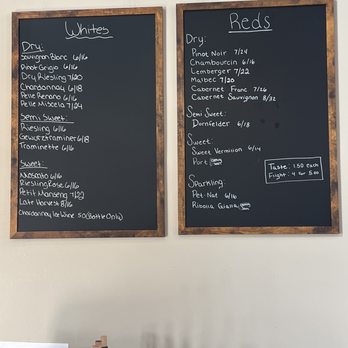 Whites
Dry:
Sauvignon Blanc 6/16
Pinot Grigio 6/16
Dry Riesling 7/20
Chardonnay 6/18
Pelle Renano 6/16
Pelle Miscela 7/24
Semi Sweet:
Riesling 6/16
Gewurztraminer 6/18
Traminette 6/16
Sweet:
Moscato 6/16
Riesling Rose 6/16
Petit Manseng 7/22
Late Harvest 8/16
Chardonnay Ice Wine 50 (Bottle Only)
Reds
Dry:
Pinot Noir 7/24
Chambourcin 6/16
Lemberger 7/22
Malbec 7/20
Cabernet Franc 7/26
Cabernet Sauvignon 8/32
Semi Sweet:
Dornfelder 6/18
Sweet:
Sweet Vermilion 6/14
Port
Taste: 1.50 each
Fright: 4 for 5.00
Sparkling:
Pet-Nat 6/16
Ribolla Gialla